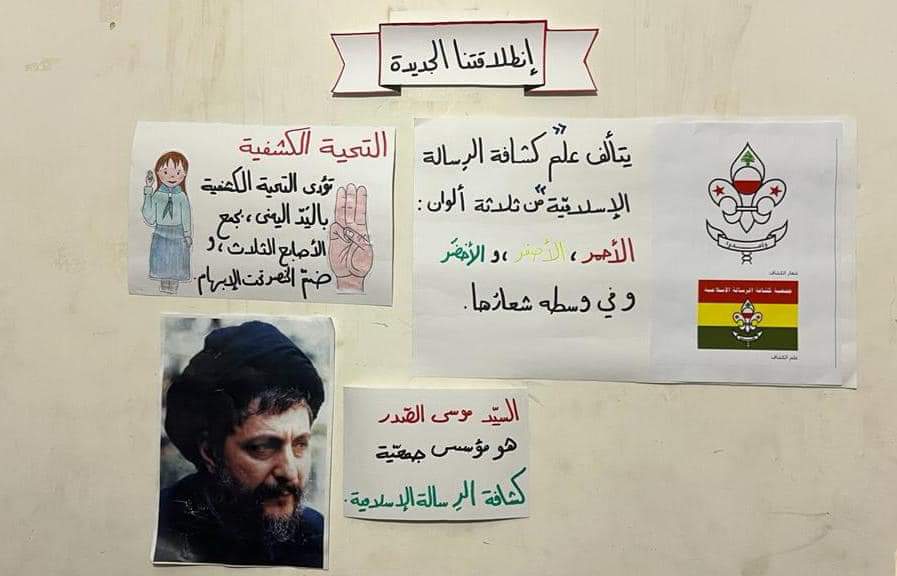 إنطلاقتنا الجديدة
التحية الكشفية
تؤدى التحية الكشفية
باليد اليمنى، بجمع
الأصابع الثلاث، و
ضمّ الخنصر تحت الإبهام.
يتألف علم "كشافة الرسالة
الإسلاميّة" من ثلاثة ألوان :
الأحمر ، الأصفر ، و الأخضر
و في وسطه شعارها.
وأعدوا
شعار الكشاف
جمعية كشافة الرسالة الإسلامية
علم الكشاف
السيّد موسى الصّدر
هو مؤسس جمعيّة
كشافة الرسالة الإسلامية.